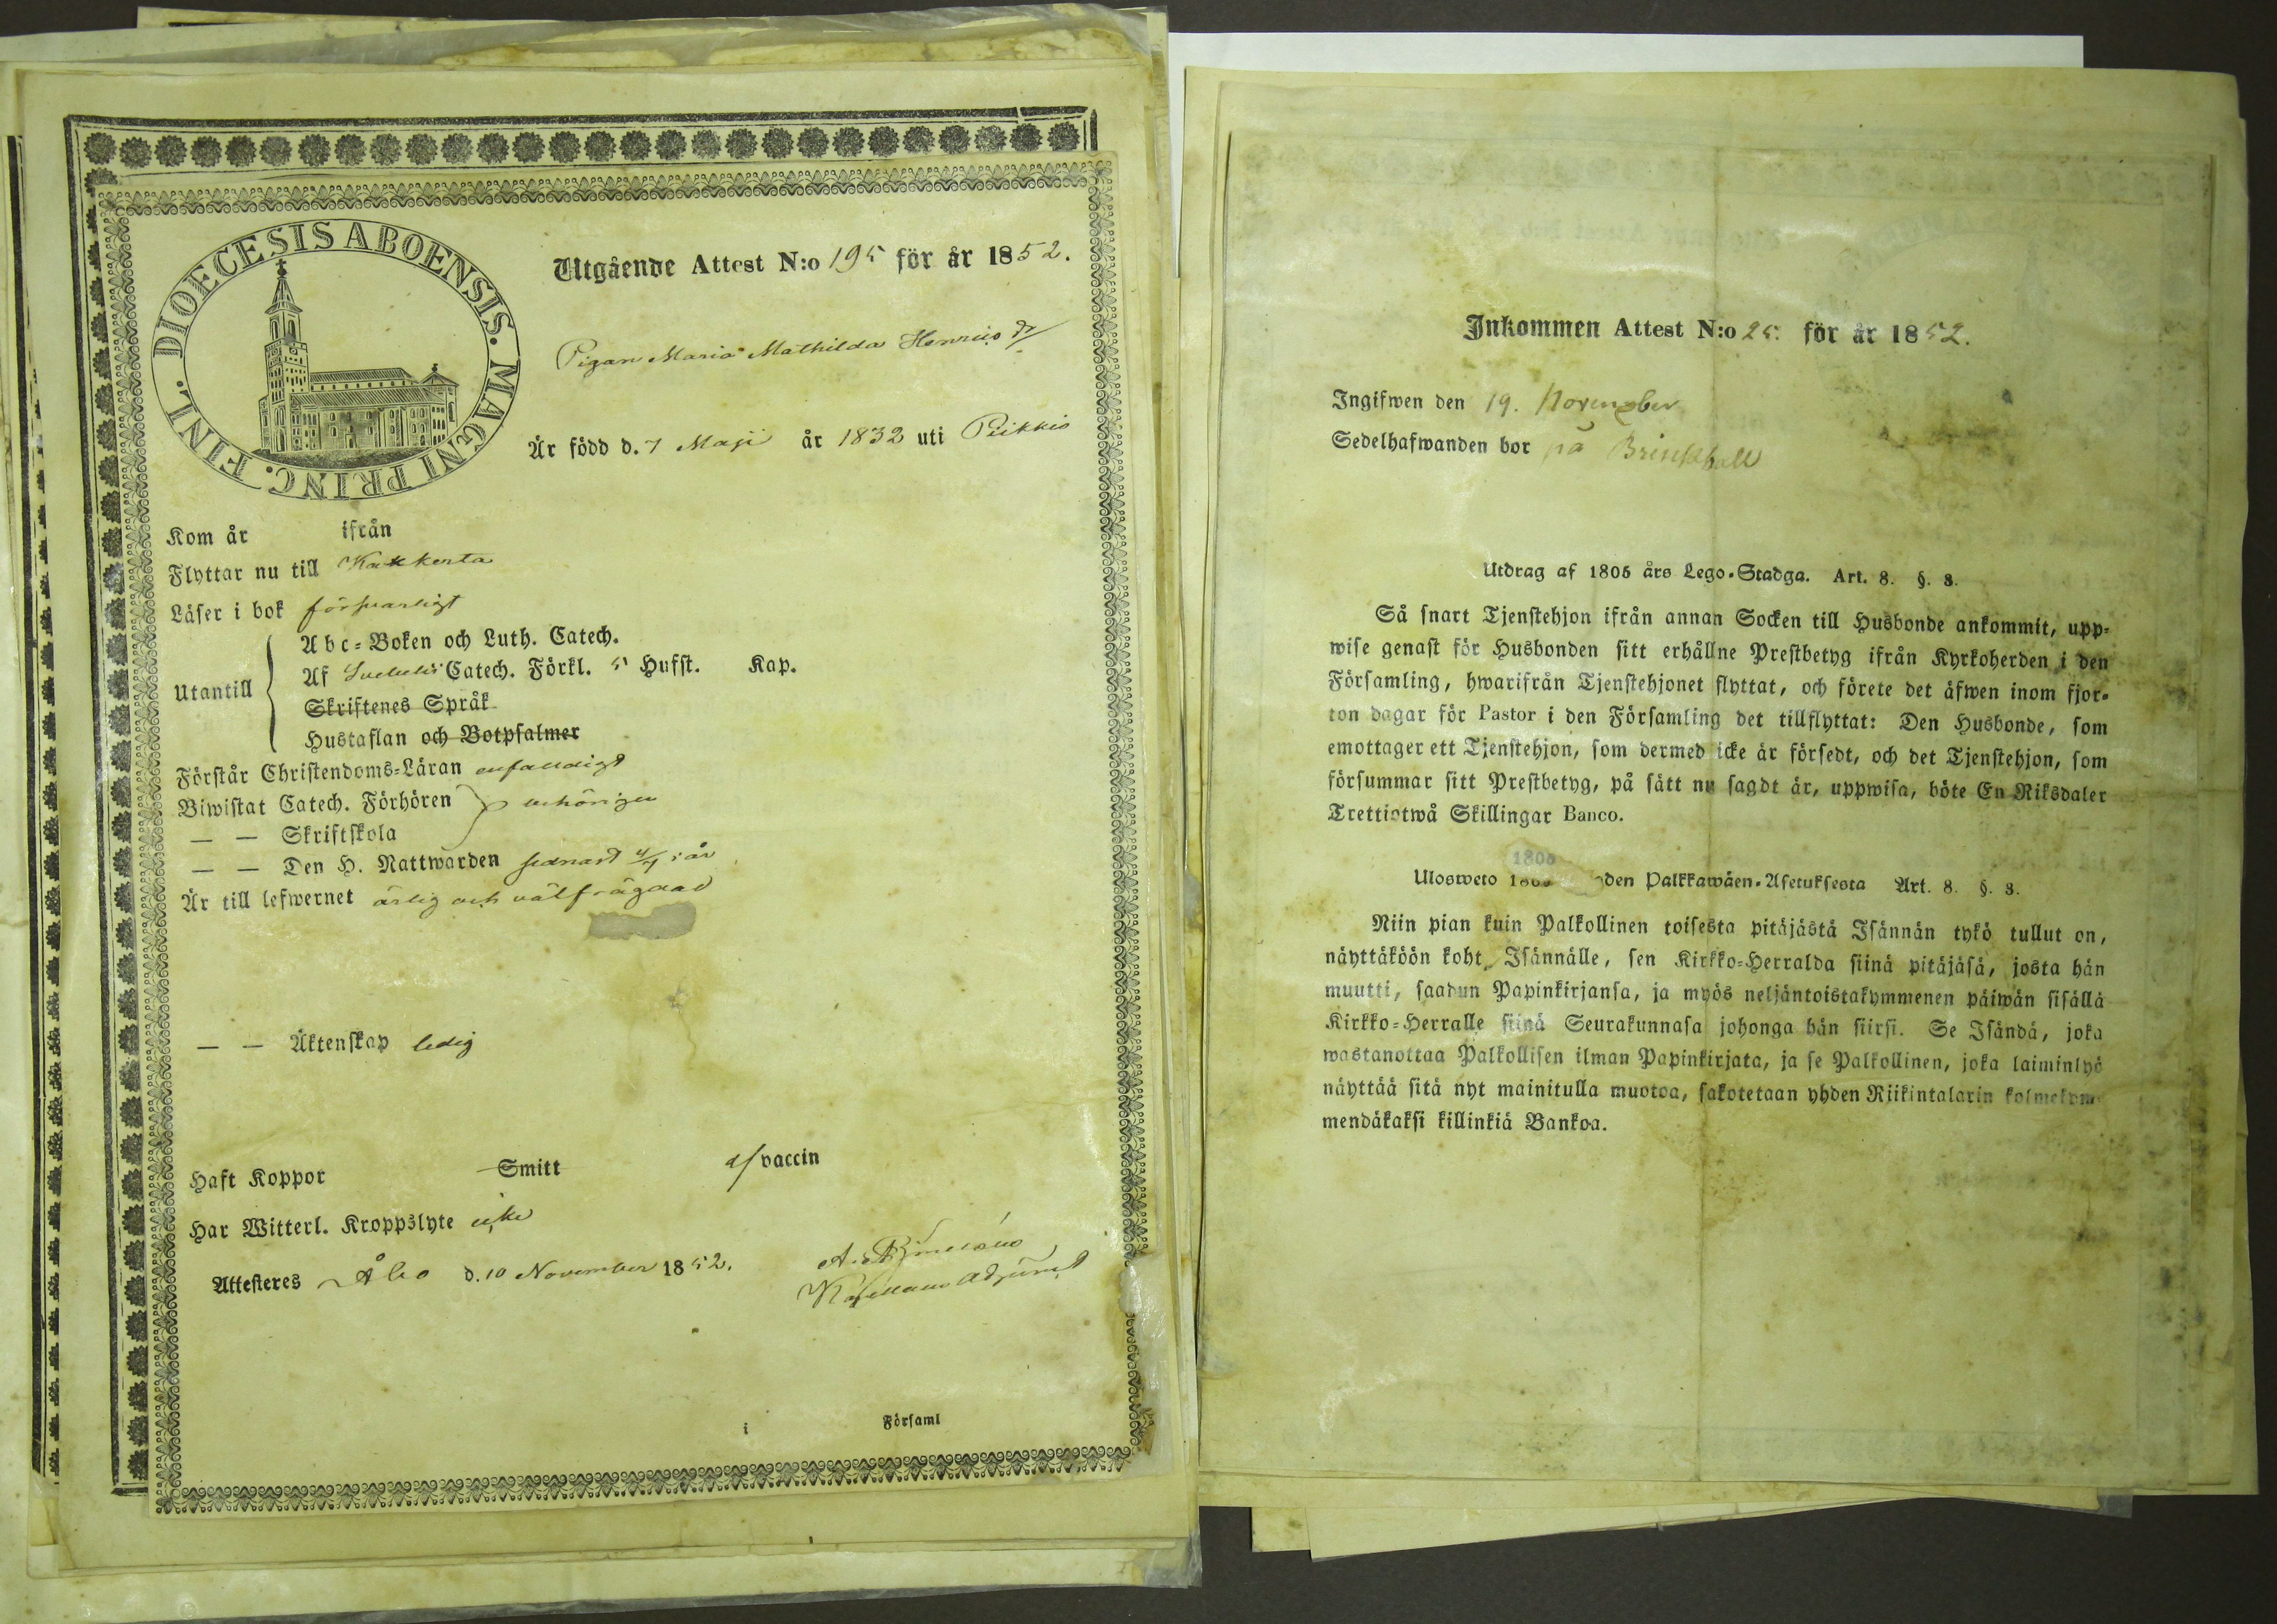 DIOECESIS ABOENSIS. MAGNI PRINC. FINL.
Utgående Attest N:o 195 för år 1852.
Pigan Maria Mathilda Henrics dr
Är född d. 7 Maji år 1832 uti Piikkis
Kom år ifrån
Flyttar nu till Kakkerta
Läser i bok försvarligt
Utantill
Abc-Boken och Luth. Catech.
Af Svebelii Catech. Förkl. 5 Hufst. Kap.
Skriftenes Språk
Hustaflan och Botpsalmer
Förstår Christendoms-Läran enfaldigt
Biwistat Catech. Förhören behörigen
— — Skriftskola
— — Den H. Nattwarden sednast i år
Är till lefwernet ärlig och välfrägdad
— — Äktenskap ledig
Haft Koppor Smitt af vaccin
Har Witterl. Kroppslyte icke
Attesteres Åbo d. 10 November 1852.
Kapellans Adjunct
i Församl
Inkommen Attest N:o 25. för år 1852.
Ingifwen den 19. November
Sedelhafwanden bor på Brinkhall
Utdrag af 1805 års Lego-Stadga. Art. 8. §. 8.
Så snart Tjenstehjon ifrån annan Socken till Husbonde ankommit, upp-
wise genast för Husbonden sitt erhållne Prestbetyg ifrån Kyrkoherden i den
Församling, hwarifrån Tjenstehjonet flyttat, och förete det äfwen inom fjor-
ton dagar för Pastor i den Församling det tillflyttat: Den Husbonde, som
emottager ett Tjenstehjon, som dermed icke är försedt, och det Tjenstehjon, som
försummar sitt Prestbetyg, på sätt nu sagdt är, uppwisa, böte En Riksdaler
Trettiotwå Skillingar Banco.
1805
Ulosweto 1805 den Palkkawäen-Asetuksesta Art. 8. §. 8.
Niin pian kuin Palkollinen toisesta pitäjästä Isännän tykö tullut on,
näyttäköön koht Isännälle, sen Kirkko-Herralda siinä pitäjäsä, josta hän
muutti, saadun Papinkirjansa, ja myös neljäntoistakymmenen päiwän sisällä
Kirkko-Herralle siinä Seurakunnasa johonga hän siirsi. Se Isändä, joka
wastanottaa Palkollisen ilman Papinkirjata, ja se Palkollinen, joka laiminlyö
näyttää sitä nyt mainitulla muotoa, sakotetaan yhden Riikintalarin kolmekym-
mendäkaksi killinkiä Bankoa.